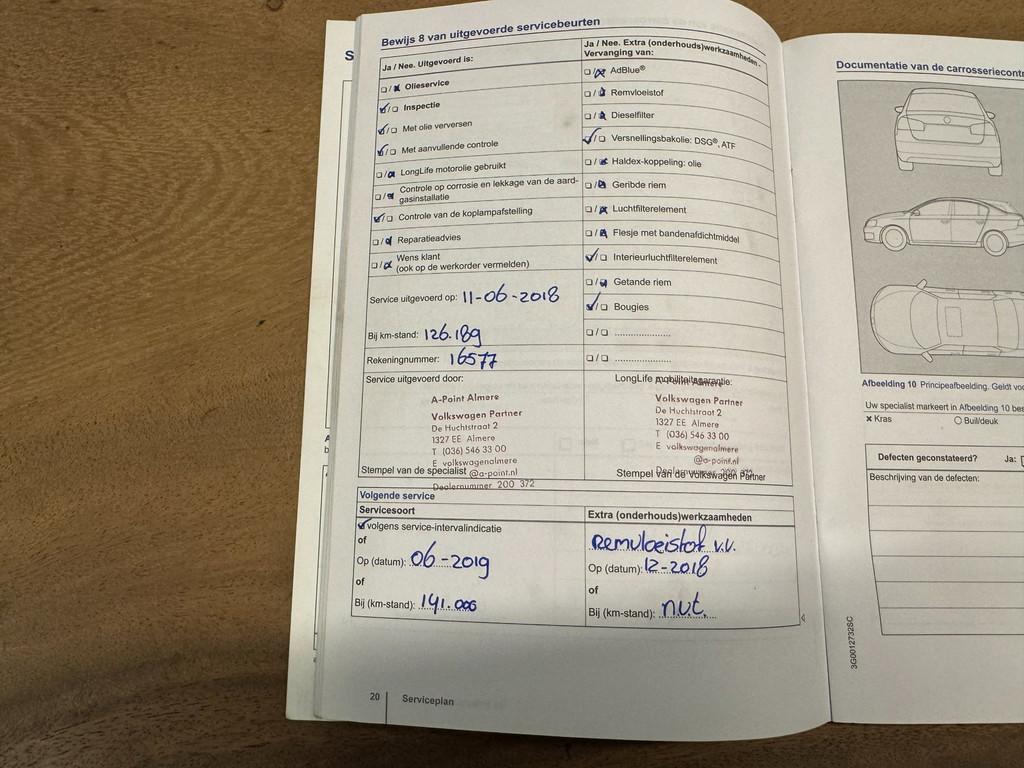 Bewijs 8 van uitgevoerde servicebeurten
Ja / Nee. Uitgevoerd is:
Olieservice
Inspectie
Met olie verversen
Met aanvullende controle
LongLife motorolie gebruikt
Controle op corrosie en lekkage van de aard-
gasinstallatie
Controle van de koplampafstelling
Reparatieadvies
Wens klant
(ook op de werkorder vermelden)
Service uitgevoerd op: 11-06-2018
Bij km-stand: 126.189
Rekeningnummer: 16577
Service uitgevoerd door:
A-Point Almere
Volkswagen Partner
De Huchtstraat 2
1327 EE Almere
T (036) 546 33 00
E volkswagenalmere
@a-point.nl
Stempel van de specialist
Dealernummer 200 372
Ja / Nee. Extra (onderhouds)werkzaamheden -
Vervanging van:
AdBlue®
Remvloeistof
Dieselfilter
Versnellingsbakolie: DSG®, ATF
Haldex-koppeling: olie
Geribde riem
Luchtfilterelement
Flesje met bandenafdichtmiddel
Interieurluchtfilterelement
Getande riem
Bougies
LongLife mobiliteitsgarantie:
A-Point Almere
Volkswagen Partner
De Huchtstraat 2
1327 EE Almere
T (036) 546 33 00
E volkswagenalmere
@a-point.nl
Dealernummer 200 372
Stempel van de Volkswagen Partner
Volgende service
Servicesoort
volgens service-intervalindicatie
of
Op (datum): 06-2019
of
Bij (km-stand): 141.000
Extra (onderhouds)werkzaamheden
Remvloeistof v.v.
Op (datum): 12-2018
of
Bij (km-stand): n.v.t.
20 Serviceplan
Documentatie van de carrosseriecontr
Afbeelding 10 Principeafbeelding. Geldt voo
Uw specialist markeert in Afbeelding 10 bes
x Kras
Buil/deuk
Defecten geconstateerd? Ja:
Beschrijving van de defecten:
3G0012732SC